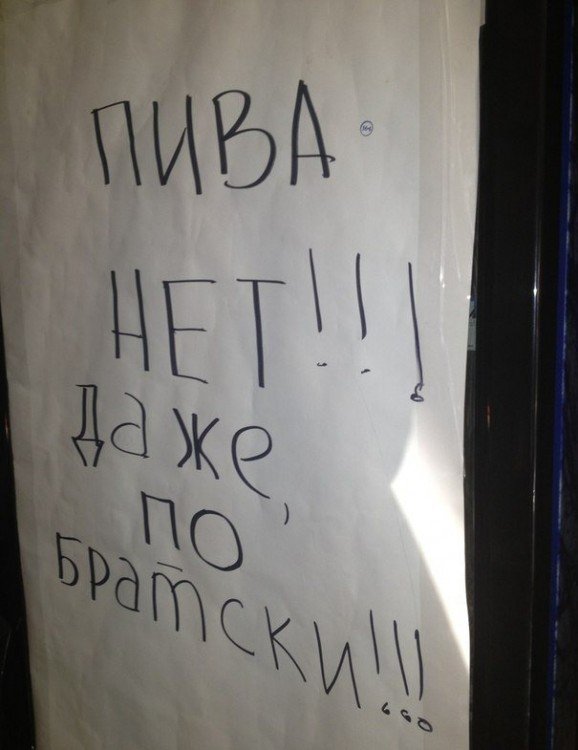 ПИВА
НЕТ!!!
Даже,
ПО
БРАТСКИ!!!